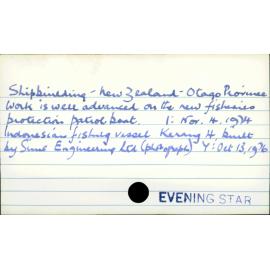 Shipbuilding - New Zealand - Otago Province
Work is well advanced on the new fisheries
protection patrol boat. 1: Nov. 4. 1974
Indonesian fishing vessel Kerang 4, built
by Sims Engineering Ltd (photograph) Y: Oct 13, 1976
EVENING STAR